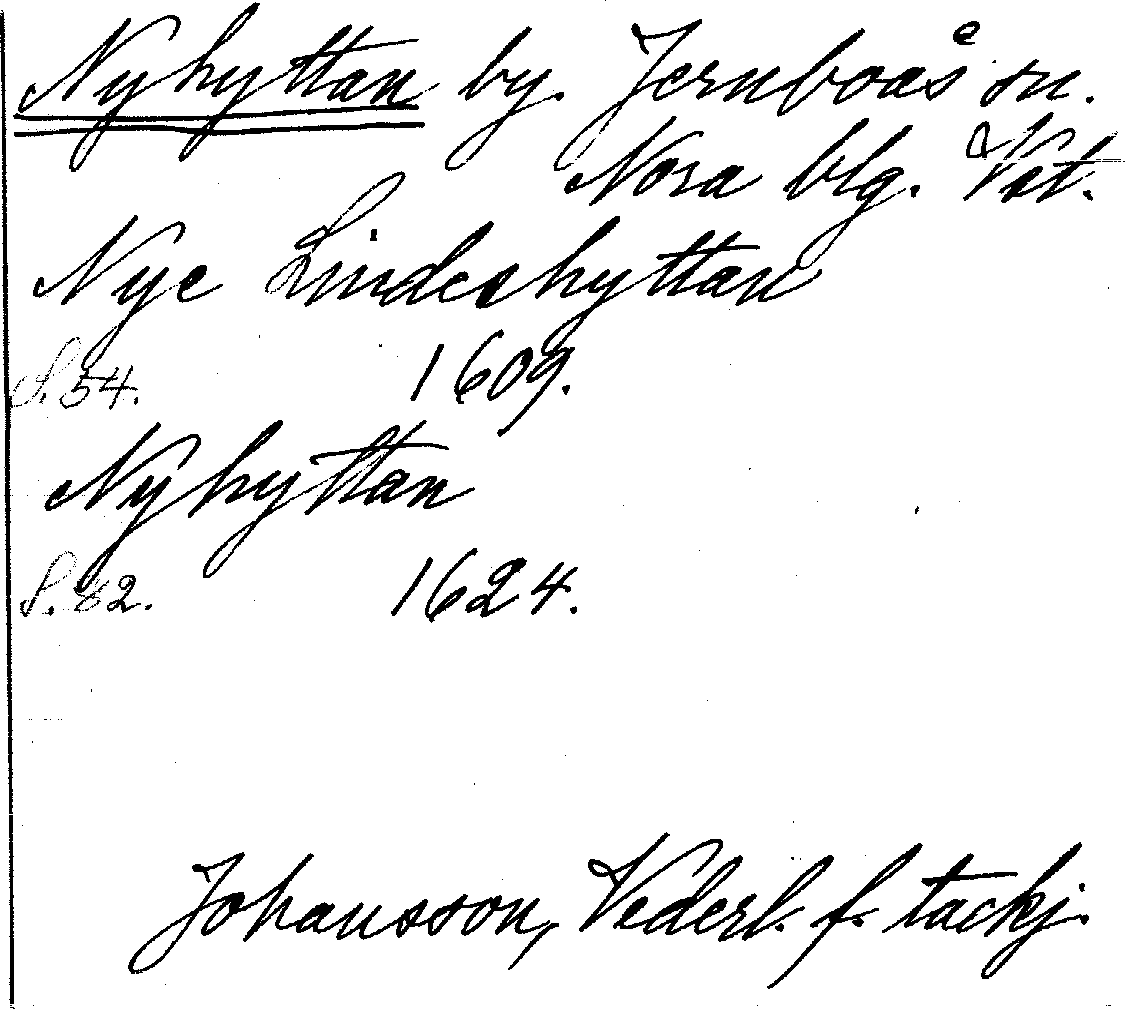 Nyhyttan by. Jernboås sn.
Nora blg. Vst.
Nye Lindeshyttan
S. 54. 1609.
Nyhyttan
S. 82. 1624.
Johansson, Vederl. f. tackj.